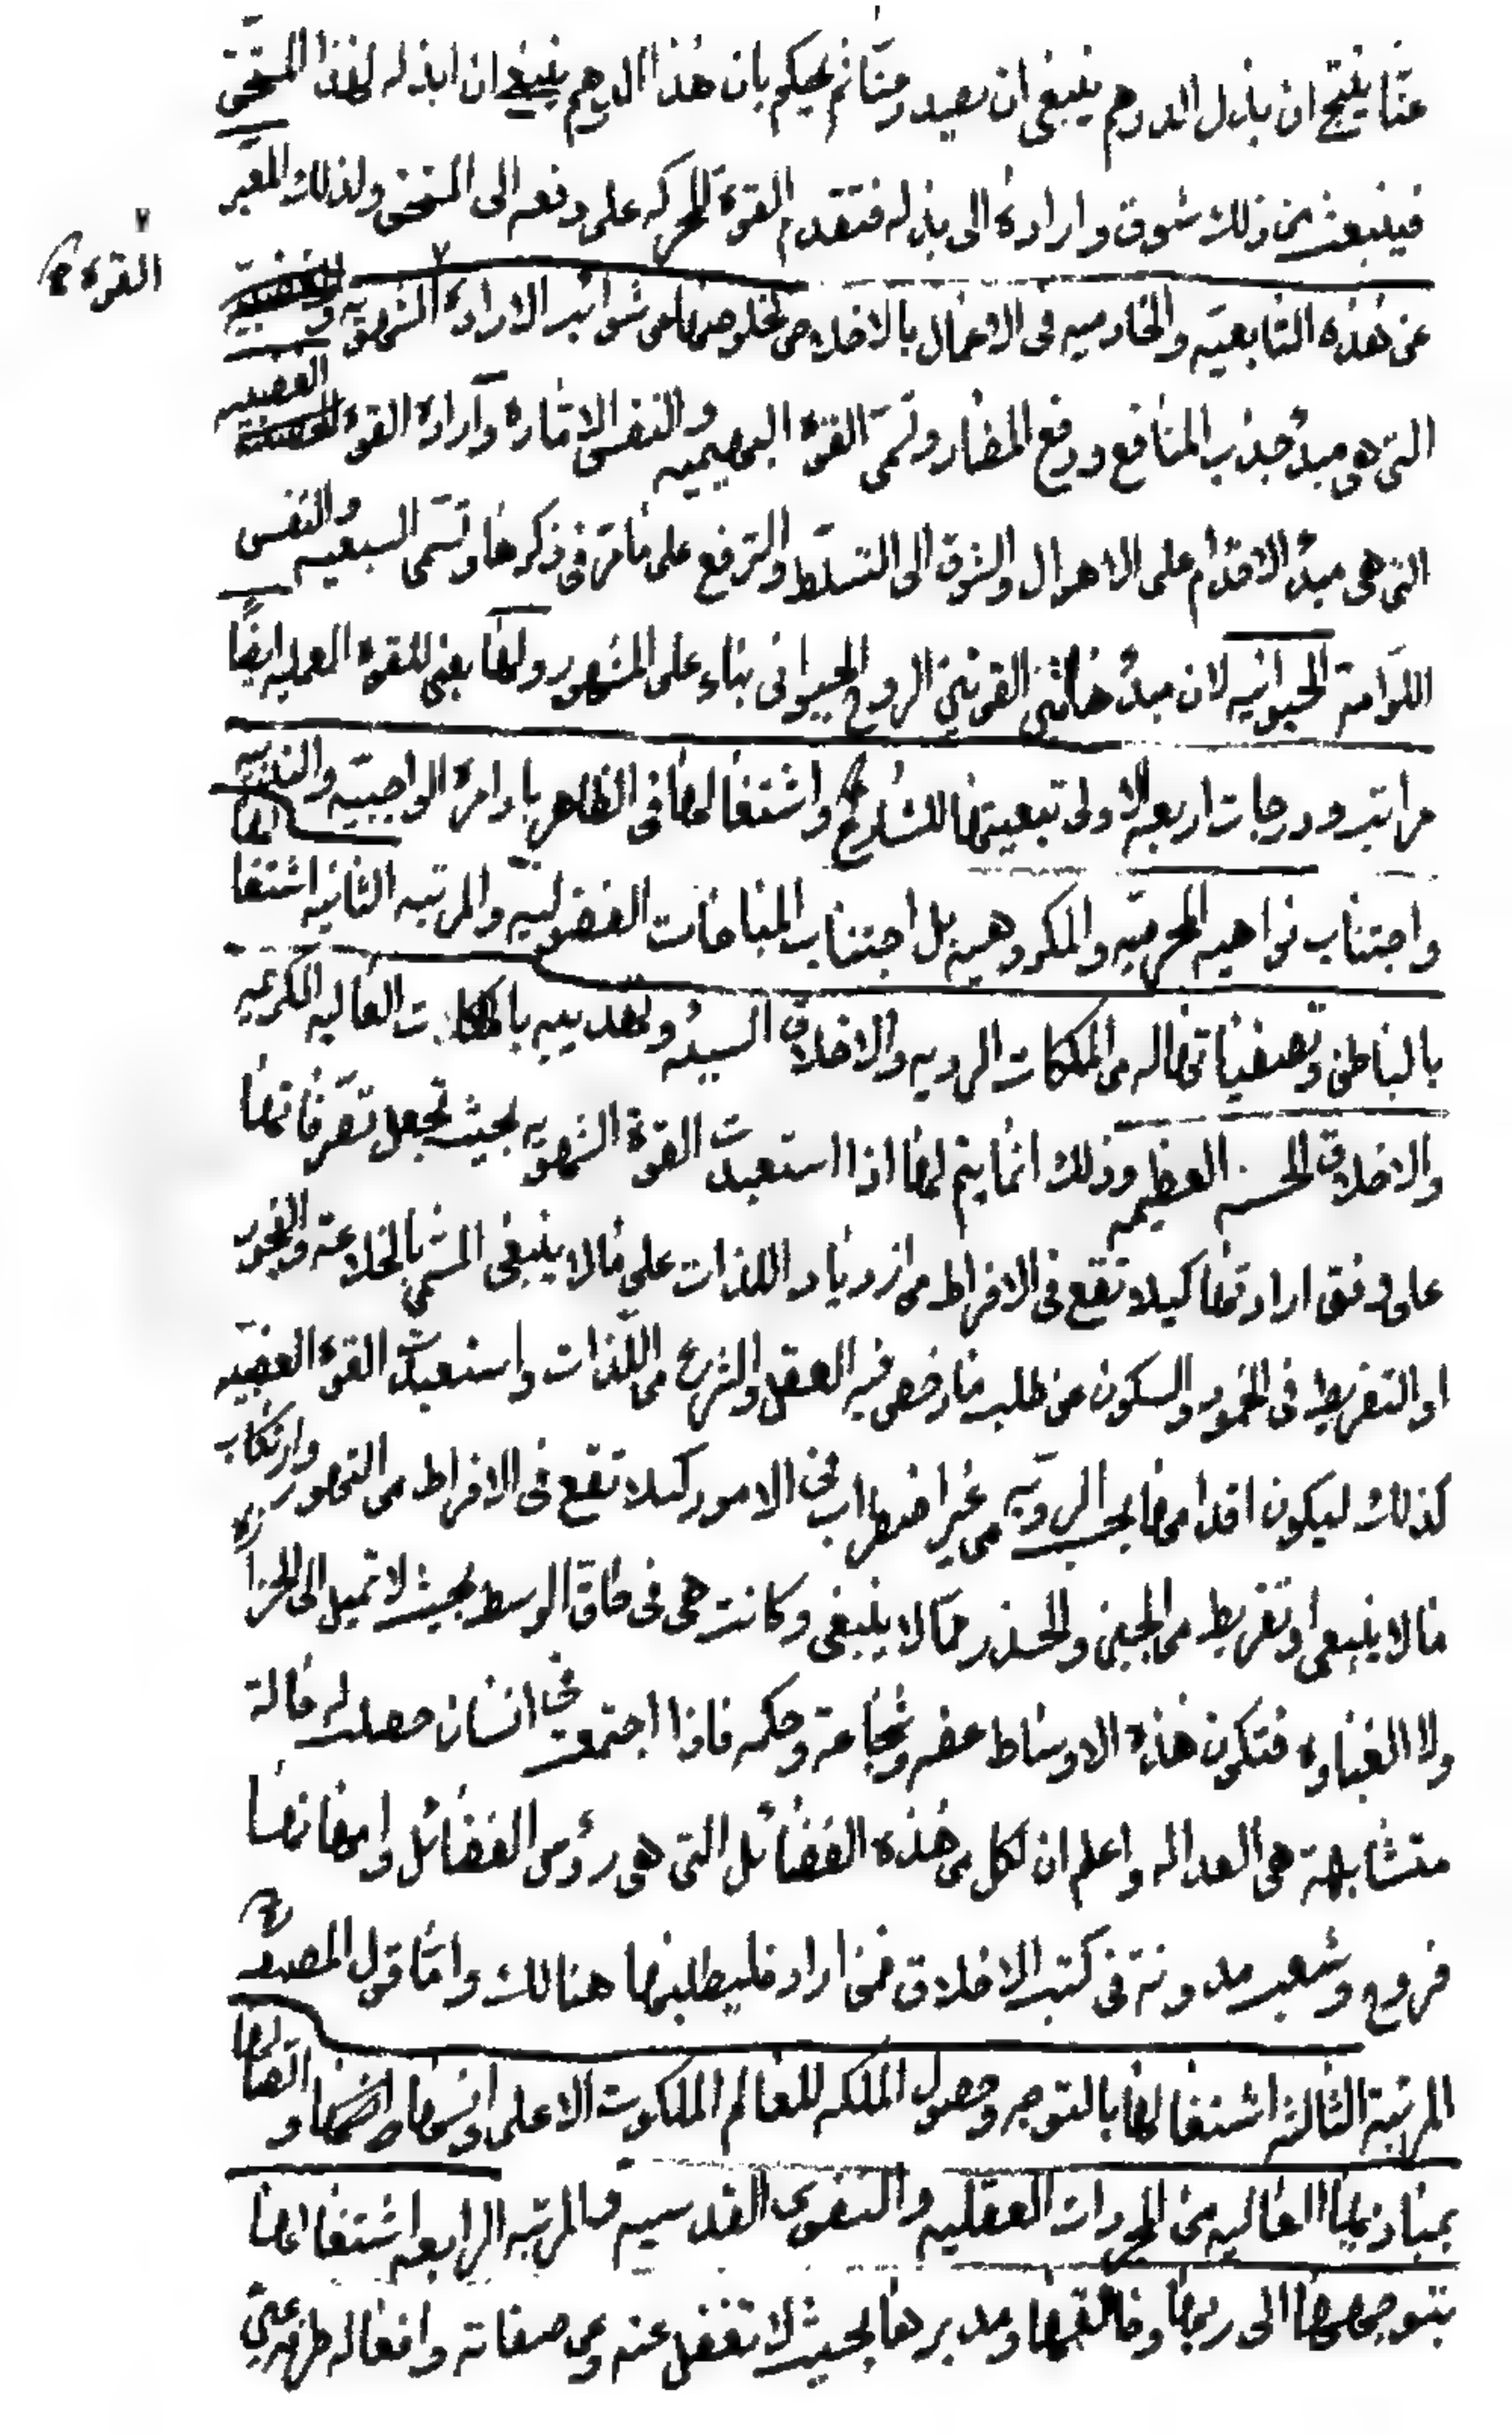 عنا ينتج ان بذل الدرهم ينبغى ان يصدر عنا ثم يحكم بان هذا الدرهم ينبغى ان ابذله لهذا المستحق
فينبعث من ذلك شوق وارادة الى بذله فتقدم القوة المحركه على دفعه الى المستحق ولذلك المعبر
القوة
عن هذه التابعيه والخادميه فى الاعمال بالاخلاص لخلوصها عن شوائب الارادة الشهويه و
التى هى مبدء جذب المنافع ودفع المضار وتسمى القوة البهيميه والنفس الامارة وارادة القوة الغضبيه
التى هى مبدء الاقدام على الاهوال والشوق الى التسلط والترفع على ما مر فى ذكرها وتسمى السبعيه والنفس
اللوامة الحيوانيه لان مبدء هاتين القوتين الروح الحيوانى بناء على المشهور ولها يعنى للقوة العمليه ايضًا
مراتب ودرجات اربعه الاولى تبعيتها للشارع واشتغالها فى الظاهر باوامره الواجبيه والندبيه
واجتناب نواهيه المحرميه والمكروهيه بل اجتناب المباحات الفضوليه والمرتبه الثانيه اشتغالها
بالباطن وتصفياتها له من الملكات الرديه والاخلاق السيئه وتهذيبه بالملكات العاليه الكريمه
والاخلاق الحسنه العظيمه وذلك انما يتم لها اذا استعبدت القوة الشهويه بحيث تجعل تصرفاتها
على وفق ارادتها كيلا تقع فى الافراط من ازدياد اللذات على ما لا ينبغى المسمى بالخلاعة والفجور
او التفريط فى الخمود والسكون عن طلب ما رخص فيه العقل والشرع من اللذات واستعبدت القوة الغضبيه
كذلك ليكون اقدامها بحسب الرويه من غير اضطراب فى الامور كيلا تقع فى الافراط من التهور وارتكاب
ما لا ينبغى او تفريط من الجبن والحذر عما لا ينبغى وكانت هى فى حاق الوسط بحيث لا تميل الى الجزبزه
ولا الغباوه فتكون هذه الاوساط عفه وشجاعة وحكمه فاذا اجتمعت فى انسان حصلت له حالة
متشابهة هى العداله واعلم ان لكل من هذه الفضائل التى هى رؤس الفضائل وامهاتها
فروع وشعب مدونة فى كتب الاخلاق فمن اراد فليطلبها هنالك واما قول المصنف
المرتبة الثالثه اشتغالها بالتوجه وحصول الملكه للعالم الملكوت الاعلى و اتصالها
بمباديها العاليه من المجردات العقليه والنفوس القدسيه والمرتبه الرابعه اشتغالها
بتوجهها الى ربها وخالقها ومدبرها بحيث لا تغفل عنه وعن صفاته وافعاله طرفه عين